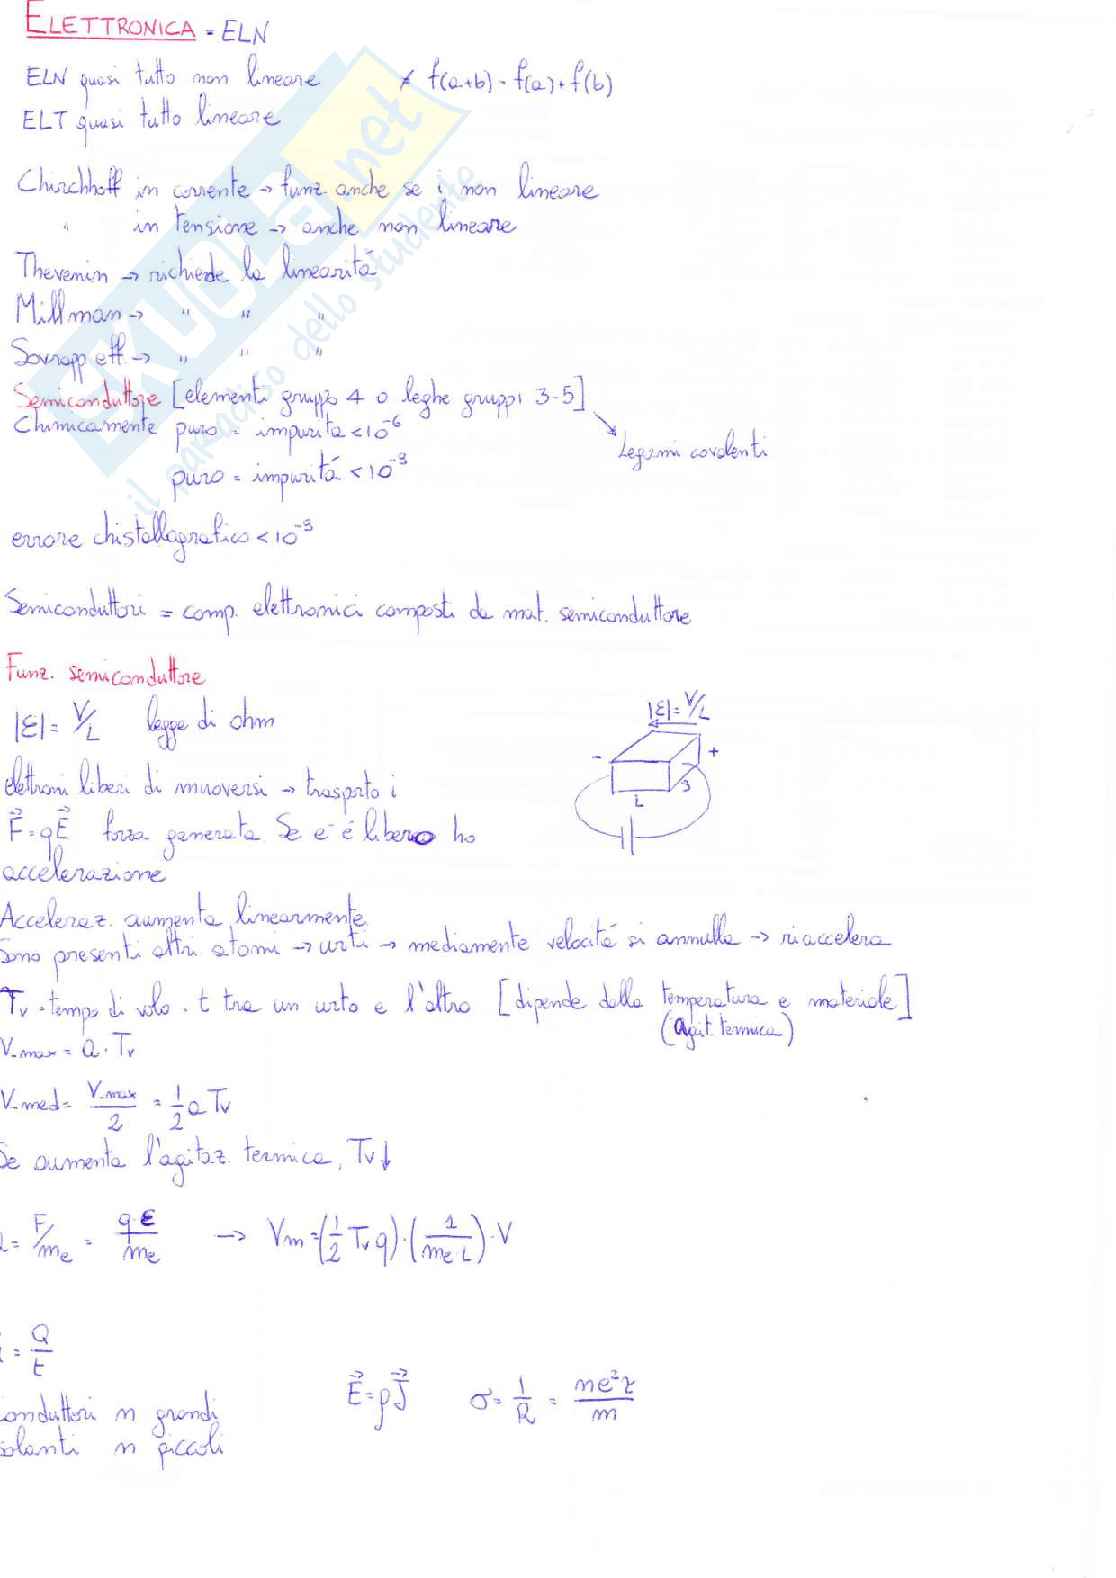 ELETTRONICA - ELN
ELN quasi tutto non lineare ≠ f(a+b) = f(a) + f(b)
ELT quasi tutto lineare
Chirchhoff in corrente → funz. anche se i non lineare
" in tensione → anche non lineare
Thevenin → richiede la linearitá
Millman → " " "
Sovrapp. eff → " " "
Semiconduttore [elementi gruppo 4 o leghe gruppi 3-5]
Chimicamente puro = impurita < 10⁻⁶
Legami covalenti
puro = impuritá < 10⁻⁹
errore christallografico < 10⁻⁹
Semiconduttori = comp. elettronici composti da mat. semiconduttore
Funz. semiconduttore
|ε| = V/L legge di ohm
|ε| = V/L
- +
L S
elettroni liberi di muoversi → trasporto i
F⃗ = qE⃗ forza generata Se e⁻ é libero ho
accelerazione
Acceleraz. aumenta linearmente
Sono presenti altri atomi → urti → mediamente velocitá si annulla → riaccelera
Tv = tempo di volo = t tra un urto e l'altro [dipende dalla temperatura e materiale]
(agit. termica)
V_max = a · Tv
V_med = V_max / 2 = 1/2 a Tv
Se aumenta l'agitaz. termica, Tv ↓
a = F/me = q·ε / me → Vm = (1/2 Tv q) · (1 / me·L) · V
i = Q/t
E⃗ = ρJ⃗ σ = 1/R = ne²τ / m
conduttori n grandi
isolanti n piccoli
skuola.net
il paradiso dello studente